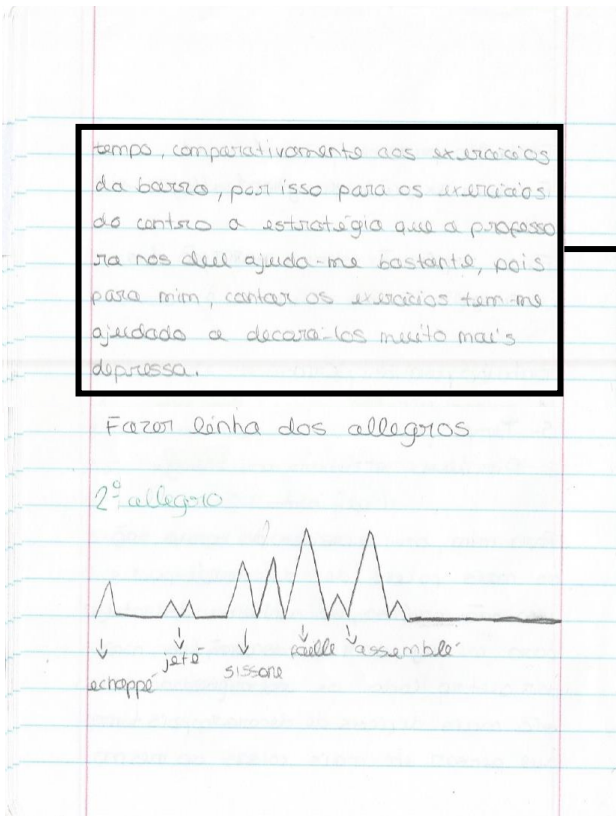 tempo, comparativamente aos exercícios
da barra, por isso para os exercícios
do centro a estratégia que a professo
ra nos deu ajuda-me bastante, pois
para mim, cantar os exercícios tem-me
ajudado a decorá-los muito mais
depressa.
Fazer linha dos allegros
2º allegro
echappé
jeté
sissone
faille
assemblé